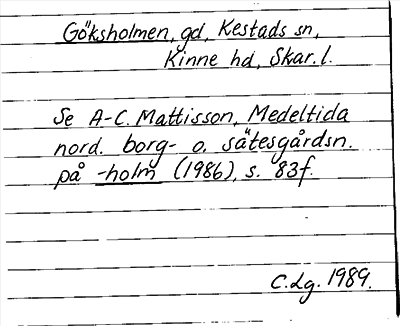 Göksholmen, gd, Kestads sn,
Kinne hd, Skar. l.
Se A-C. Mattisson, Medeltida
nord. borg- o. sätesgårdsn.
på -holm (1986), s. 83f.
C.Lg. 1989.